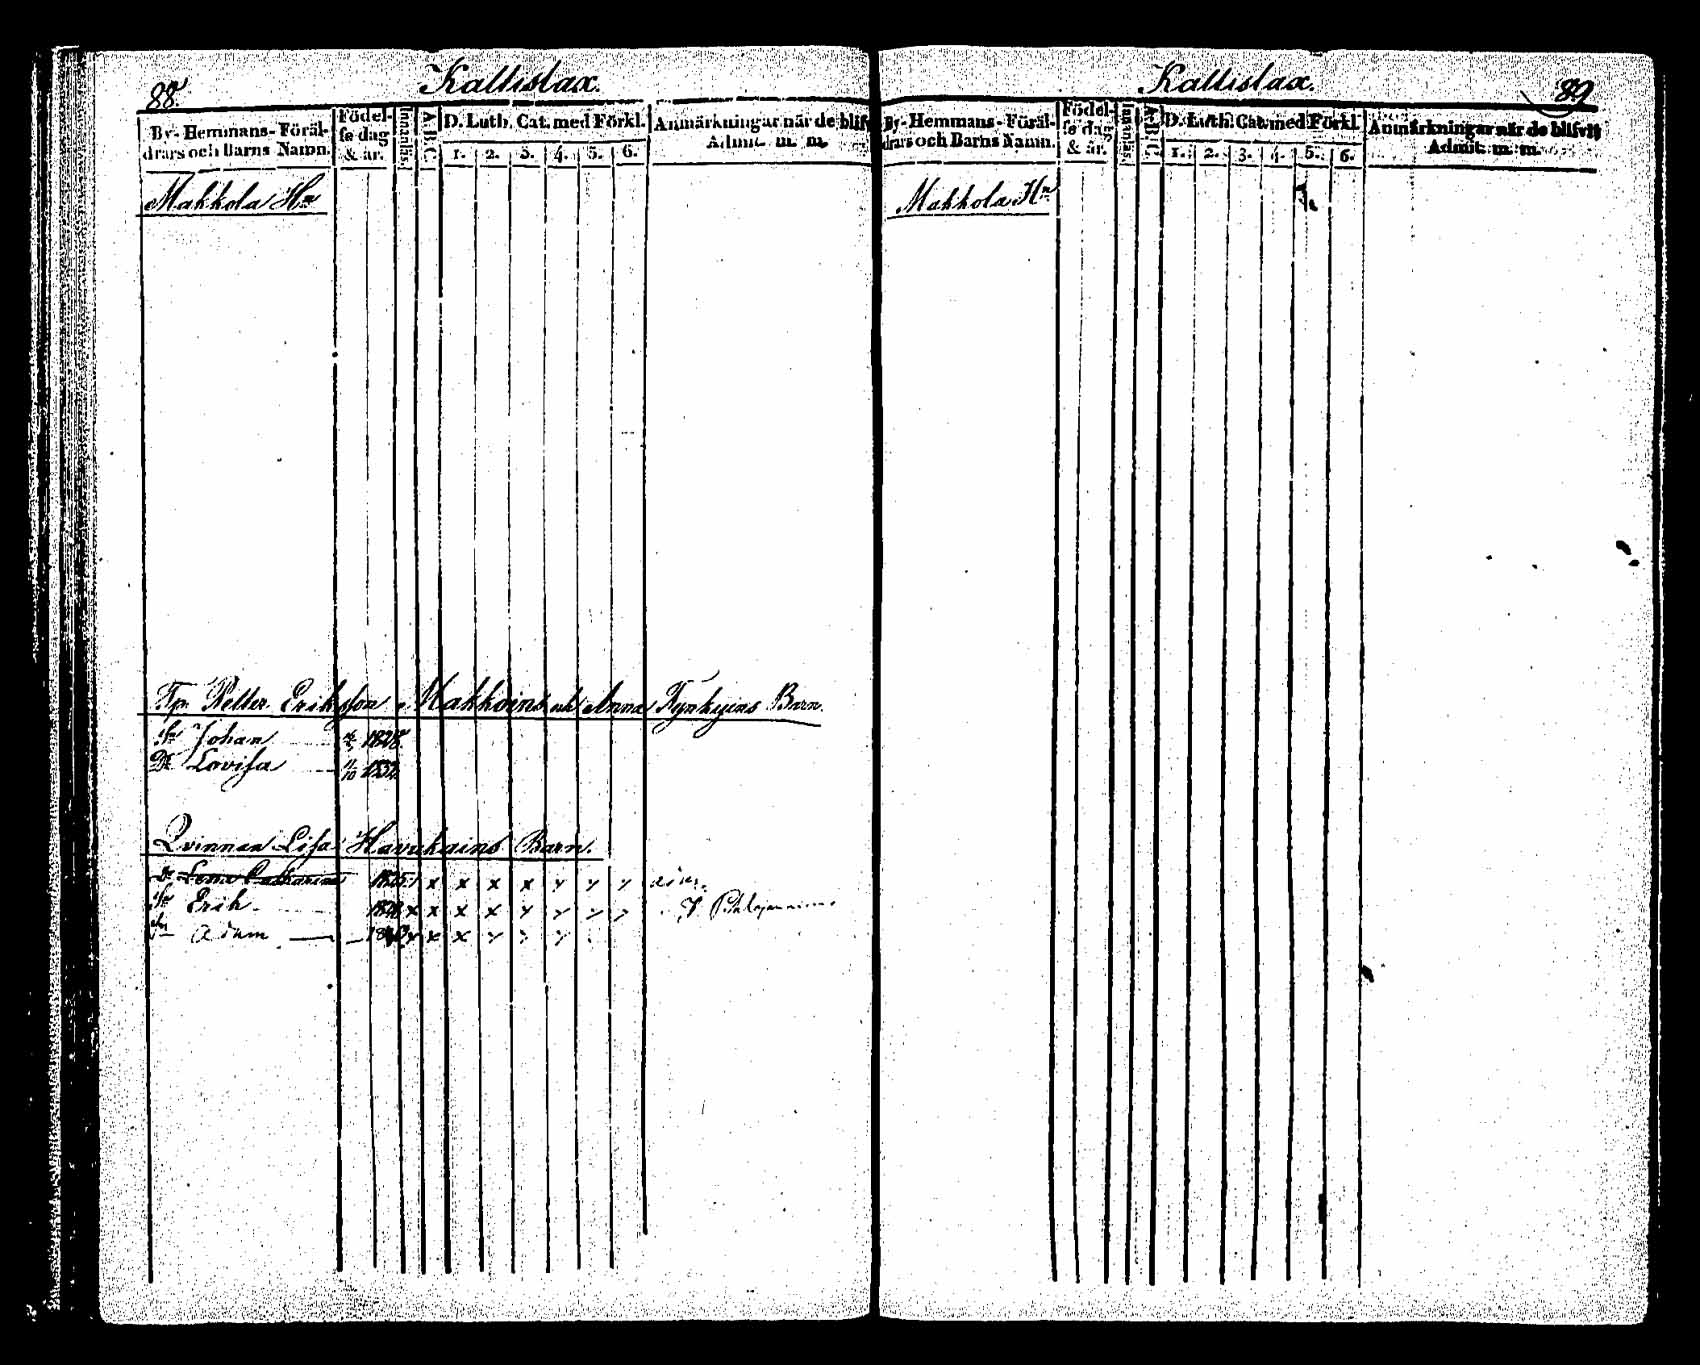 88.
Kallislax.
By-Hemmans-Föräl-
drars och Barns Namn.
Födel-
se dag
& år.
Innanläs.
A.B.C.
D. Luth. Cat. med Förkl.
1. 2. 3. 4. 5. 6.
Anmärkningar när de blifv
Admit. m. m.
Makkola Hn
Petter Eriksson Makkoins och Anna Kynkyens Barn.
Sn Johan 1828
Dr Lovisa 11/10
Qvinnan Lisa Havukains Barn.
Dr Lena Catharina 1825 x x x x x x x
Sn Erik 1828 x x x x x x x x
Sn Adam x x x x x x
Kallislax.
89
By-Hemmans-Föräl-
drars och Barns Namn.
Födel-
se dag
& år.
Innanläs.
A.B.C.
D. Luth. Cat. med Förkl.
1. 2. 3. 4. 5. 6.
Anmärkningar när de blifvit
Admit. m. m.
Makkola Hn